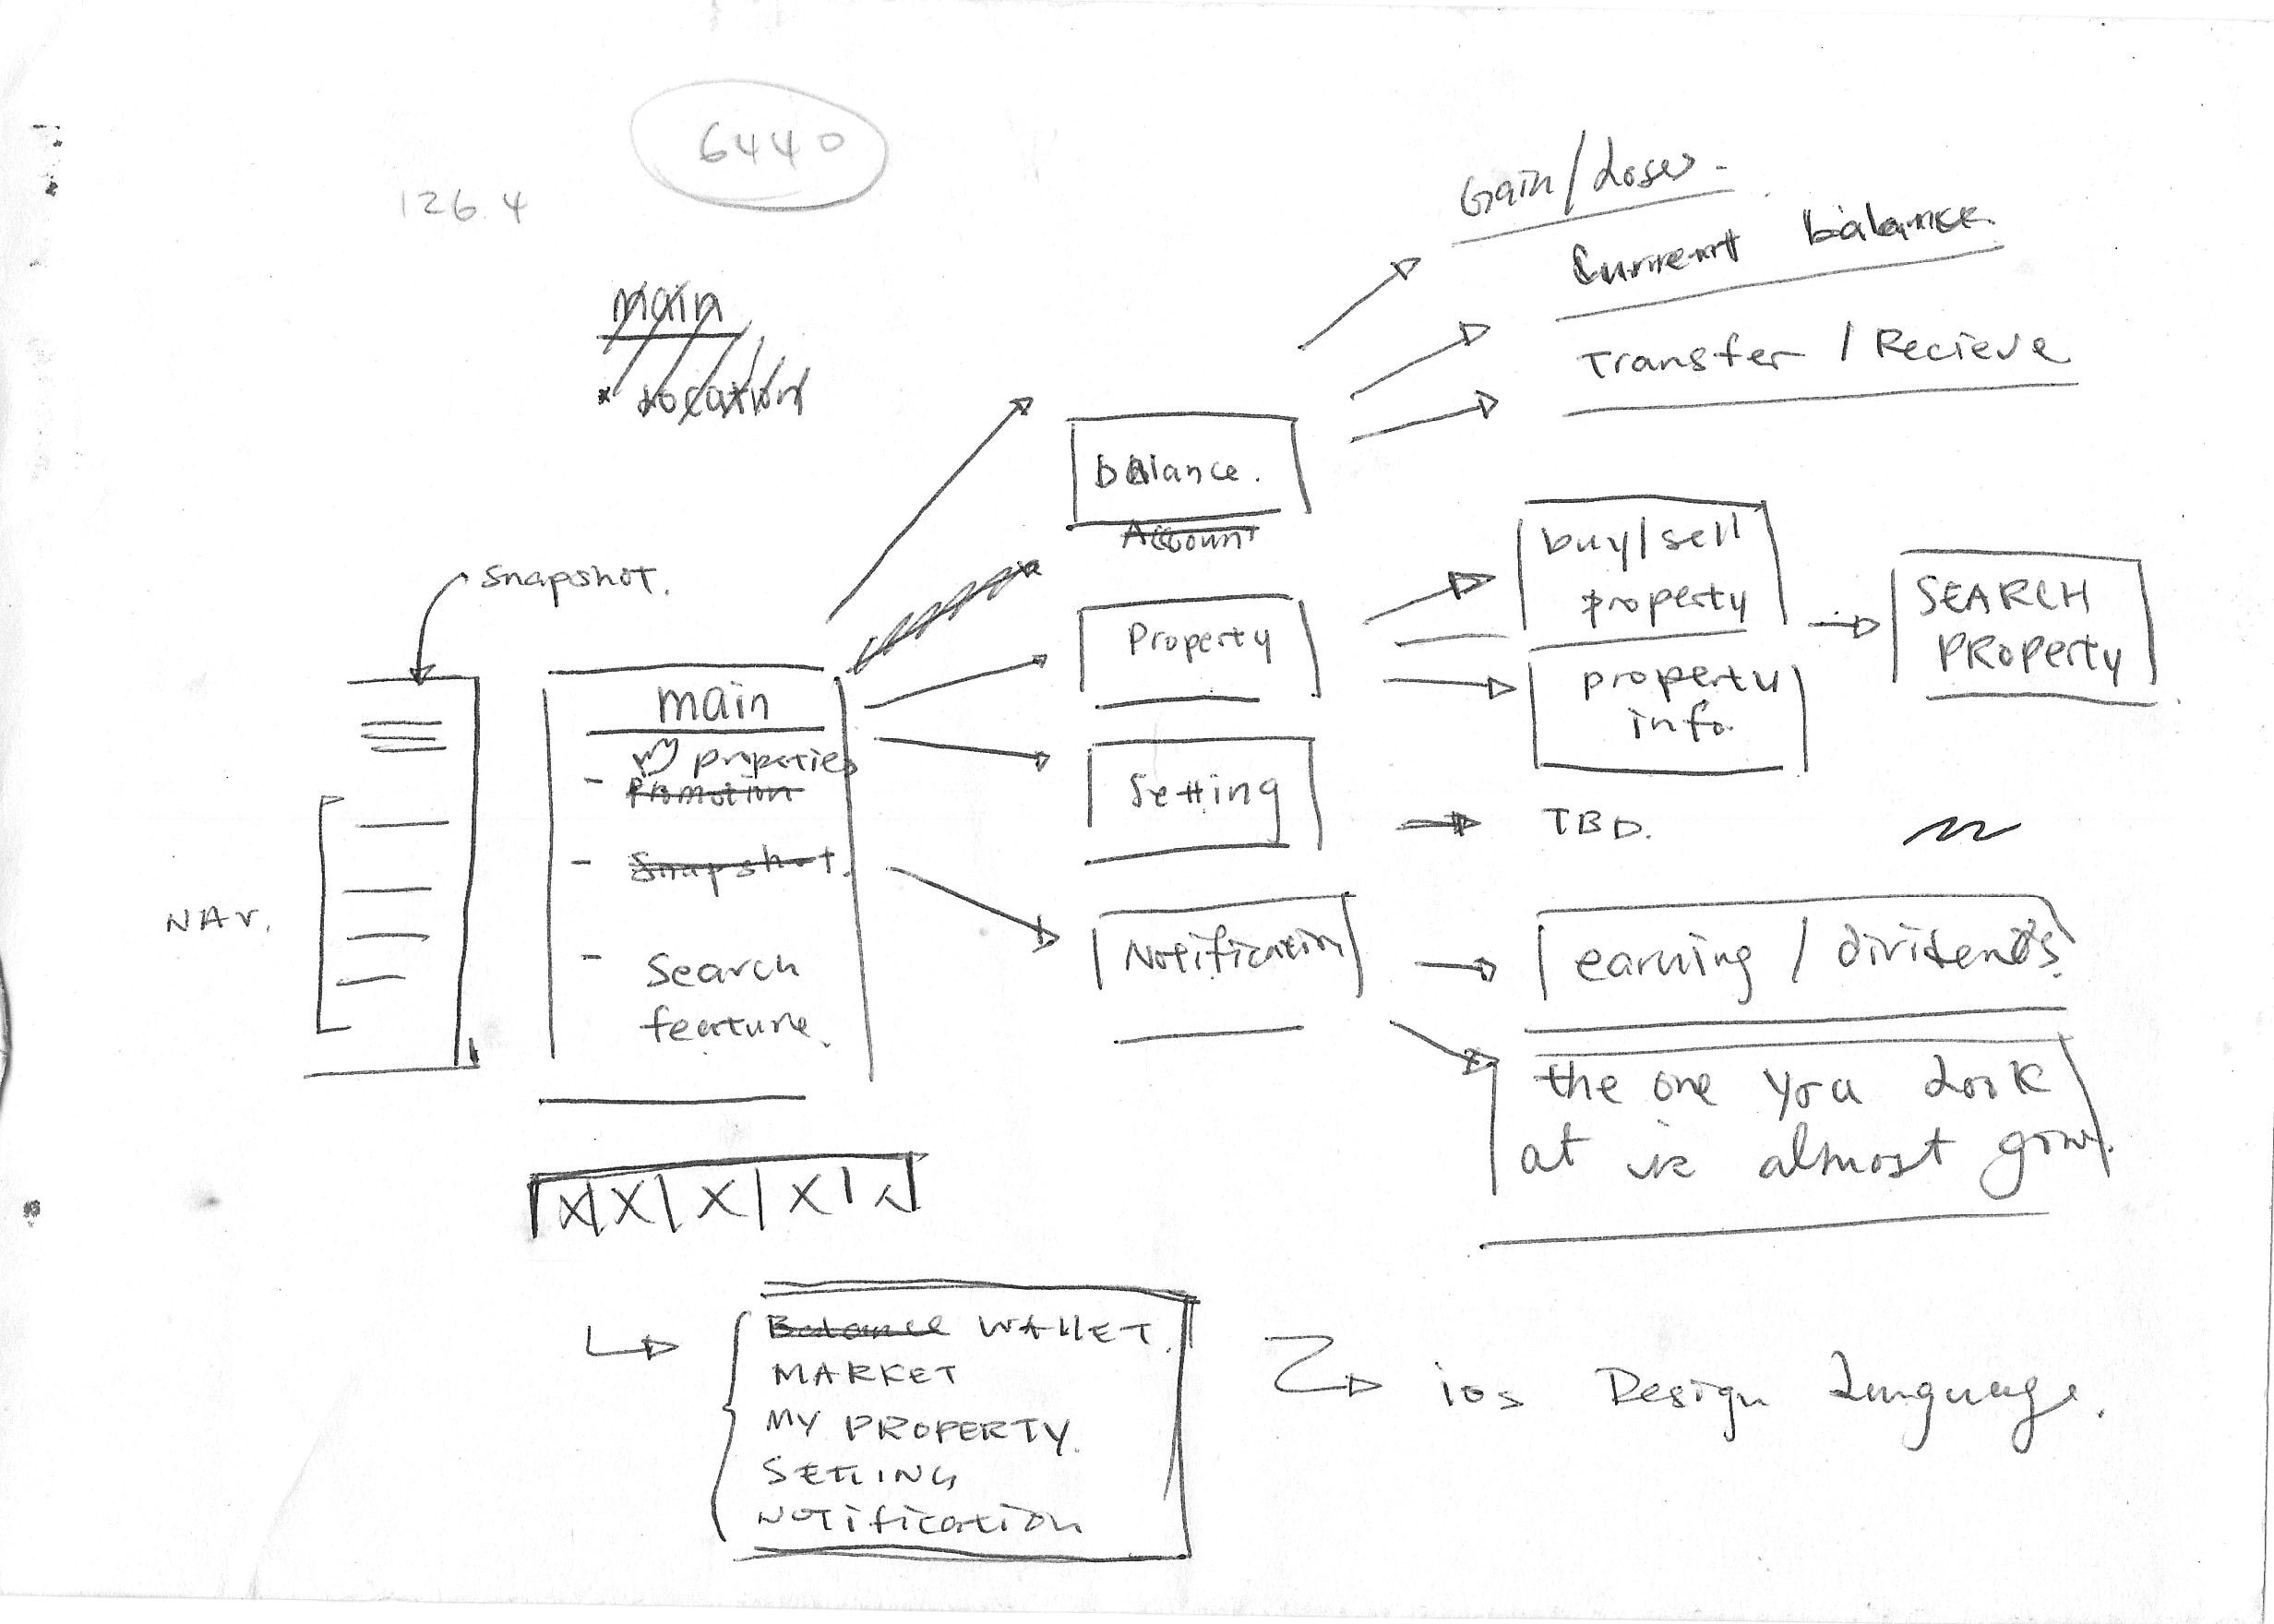 6440
1264
main
location
Gain / Loses.
Current balance.
Transfer / Recieve
balance.
Account
Snapshot.
buy/sell
property
SEARCH
PROPERTY
Property
property
info.
main
properties
Promotion
Snapshot.
Search
feature.
NAV.
Setting
TBD.
Notification
earning / dividends.
the one you look
at is almost gone.
X X X X
Balance WALLET.
MARKET
MY PROPERTY.
SETTING
NOTification
ios Design Language.